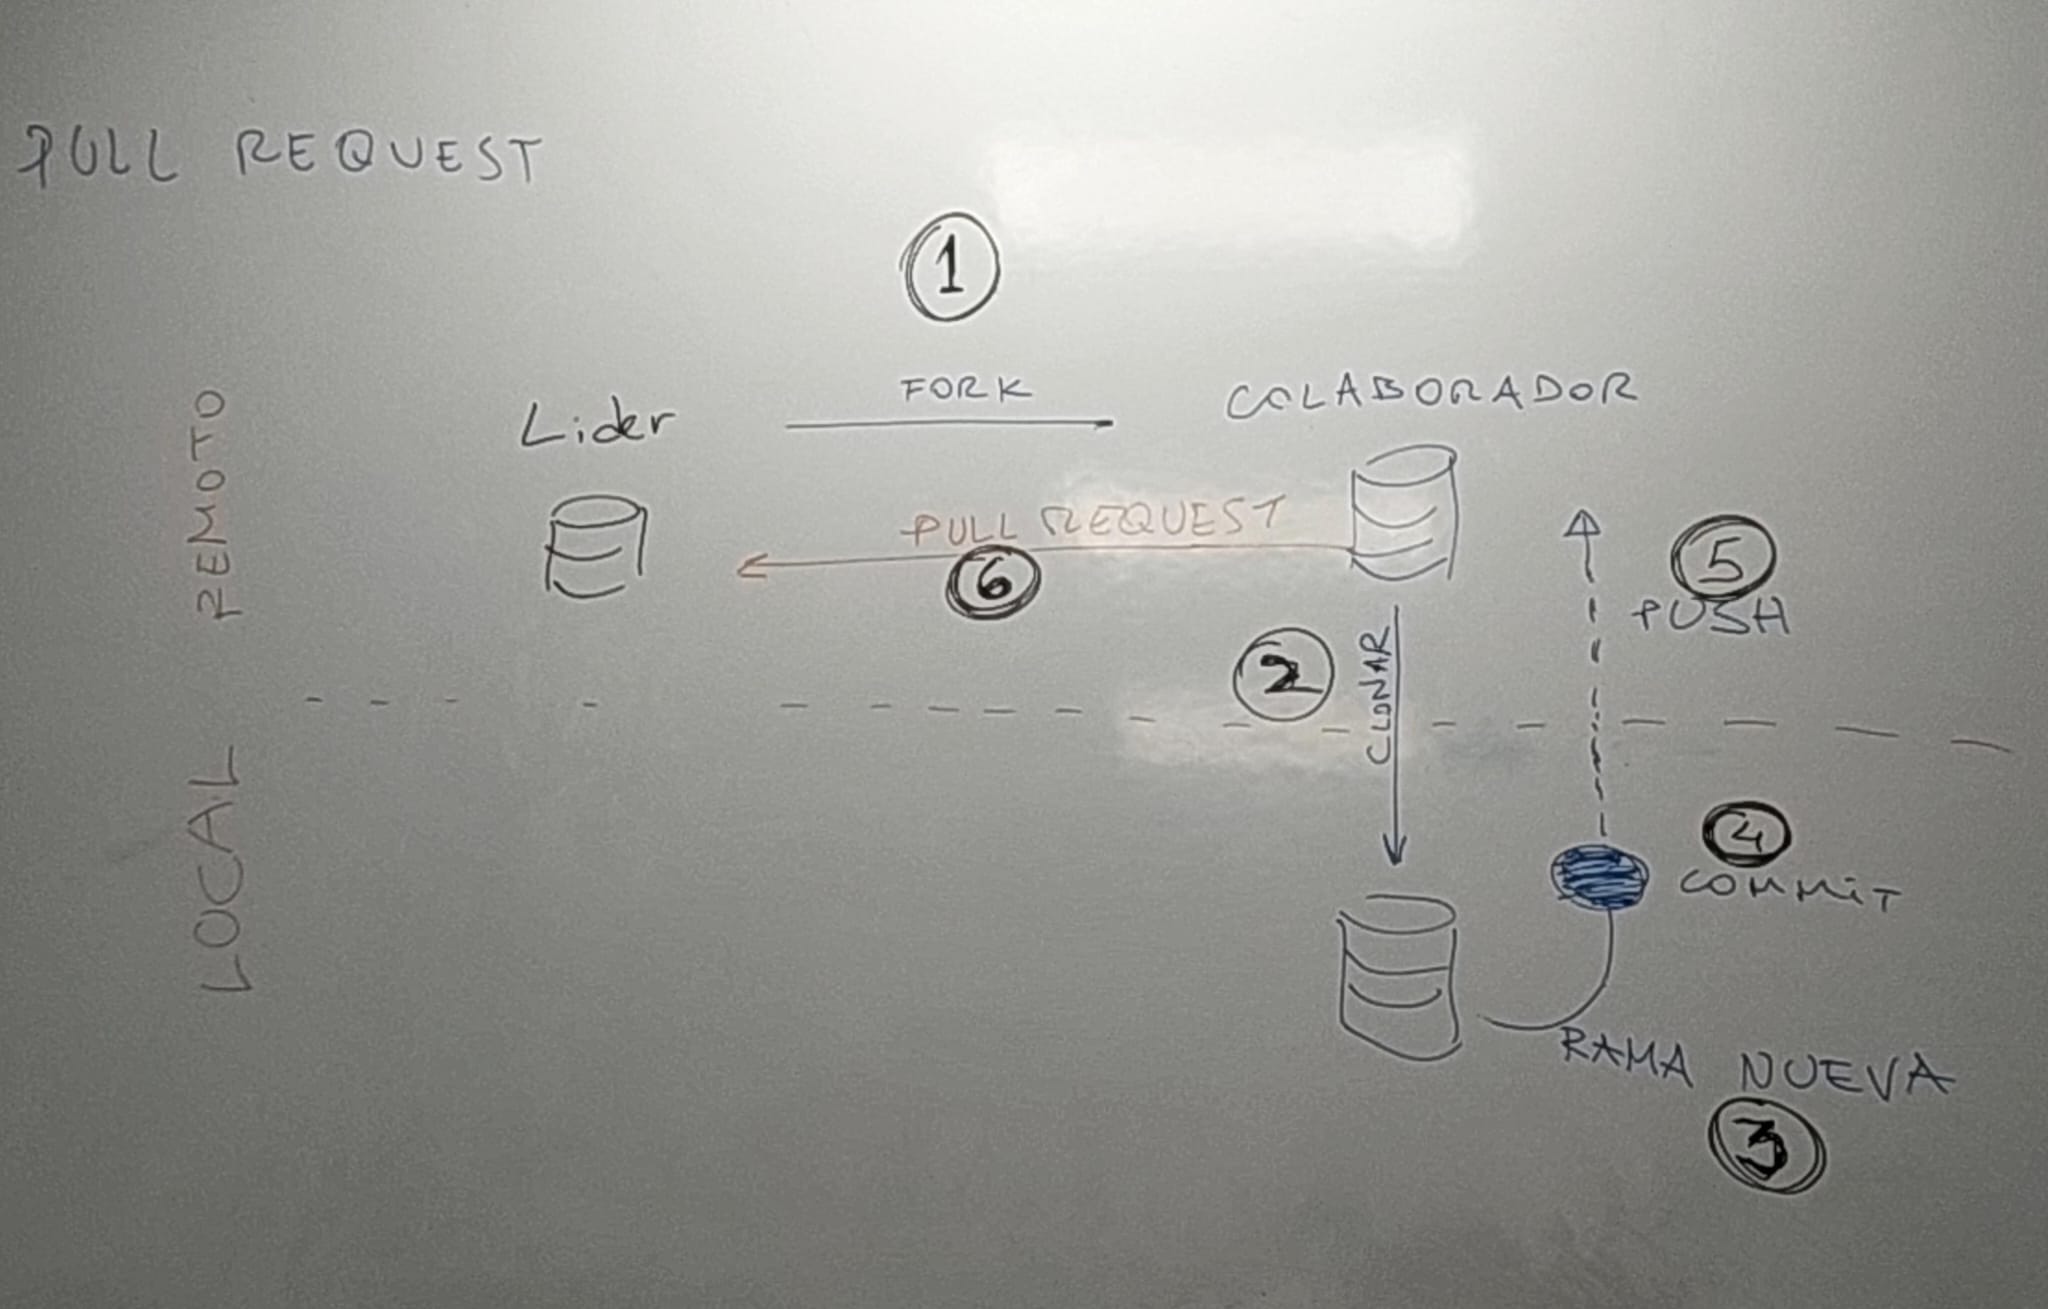 PULL REQUEST
1
FORK
Lider
COLABORADOR
REMOTO
PULL REQUEST
6
5
PUSH
2
CLONAR
LOCAL
4
COMMiT
RAMA NUEVA
3